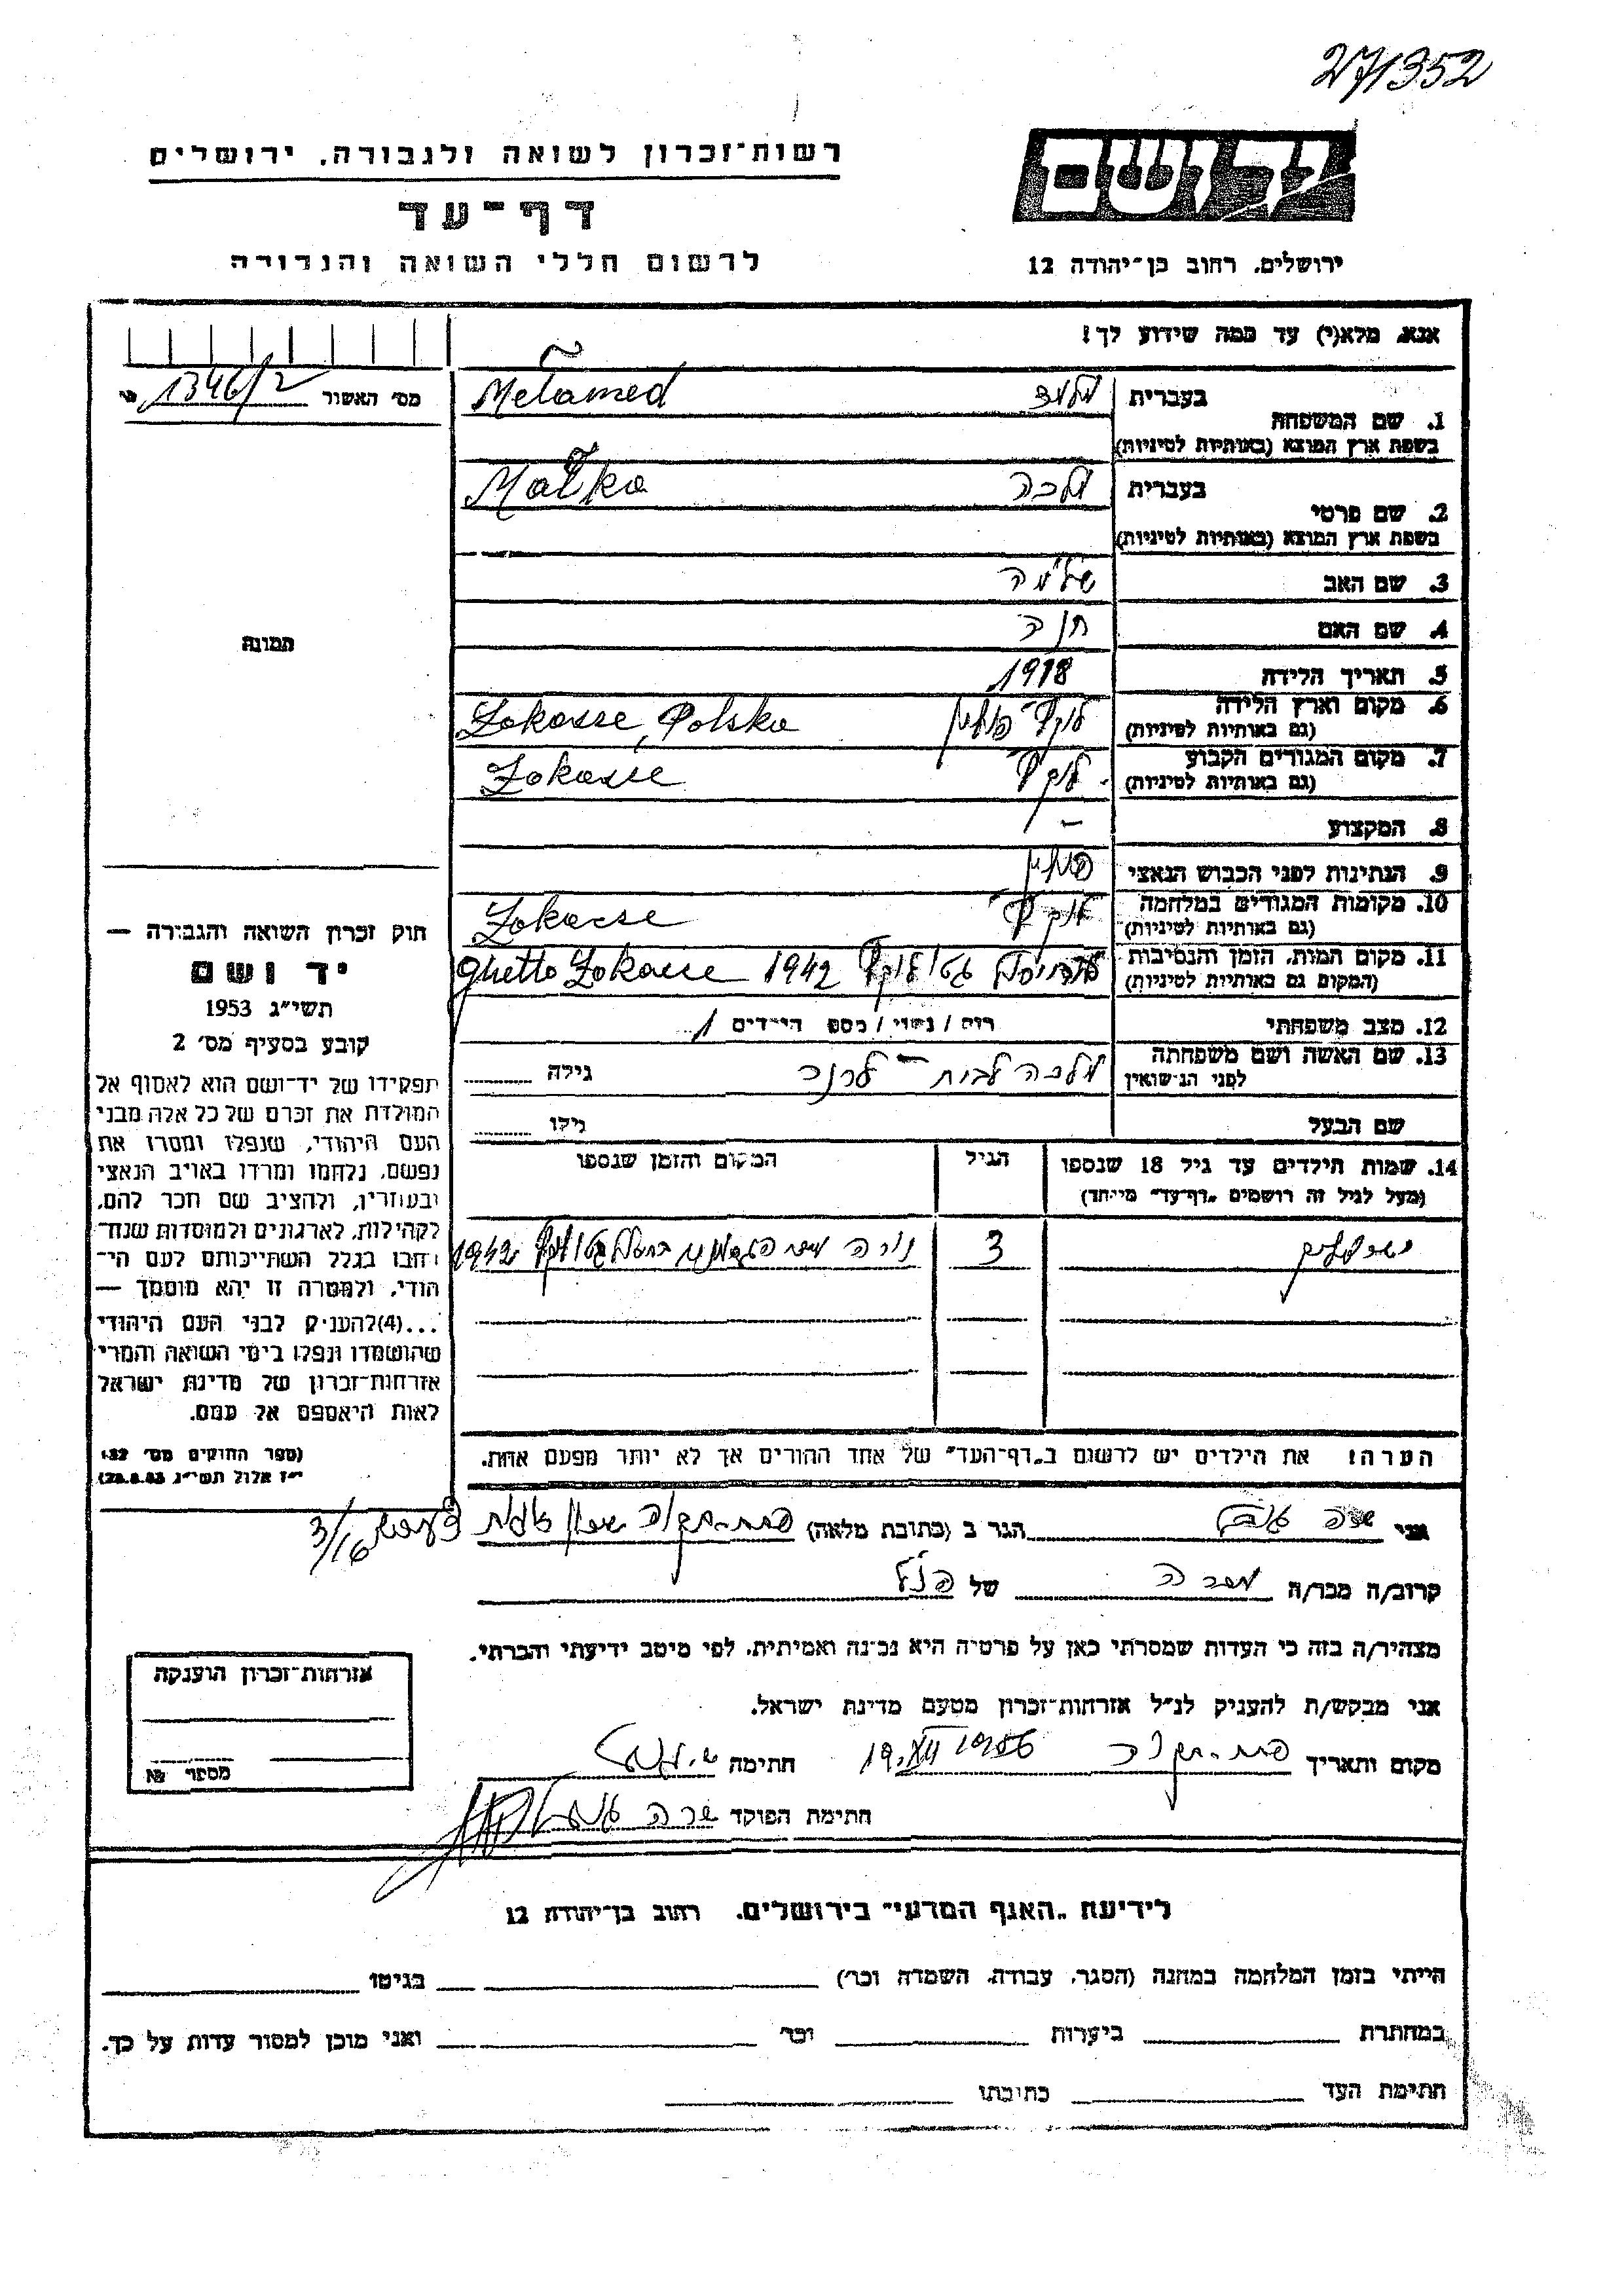 271352
רשות־זכרון לשואה ולגבורה. ירושלים
יד ושם
דף־עד
לרשום חללי השואה והגבורה
ירושלים. רחוב בן־יהודה 12
אנא, מלא(י) עד כמה שידוע לך!
מס׳ האשור 1346/2
1. שם המשפחה
בעברית מלמד Mełamed
בשפת ארץ המוצא (באותיות לטיניות)
2. שם פרטי
בעברית מלכה Małka
בשפת ארץ המוצא (באותיות לטיניות)
3. שם האב שלמה
4. שם האם חנה
תמונה
5. תאריך הלידה 1918
6. מקום וארץ הלידה פולין Lokacse, Polska
(גם באותיות לטיניות)
7. מקום המגורים הקבוע Lokacse
(גם באותיות לטיניות)
8. המקצוע –
9. הנתינות לפני הכבוש הנאצי פולין
10. מקומות המגורים במלחמה Lokacse
(גם באותיות לטיניות)
11. מקום המות, הזמן והנסיבות 1942 Ghetto Lokacse
(המקום גם באותיות לטיניות)
12. מצב משפחתי רוק / נשוי / מספ הילדים 1
13. שם האשה ושם משפחתה מלכה לבית לרנר גילה
לפני הנישואין
שם הבעל גילו
14. שמות הילדים עד גיל 18 שנספו הגיל המקום והזמן שנספו
(מעל לגיל זה רושמים „דף־עד” מיוחד)
3 נורה 1942
הערה! את הילדים יש לרשום ב„דף־העד” של אחד ההורים אך לא יותר מפעם אחת.
חוק זכרון השואה והגבורה —
יד ושם
תשי״ג 1953
קובע בסעיף מס׳ 2
תפקידו של יד־ושם הוא לאסוף אל
המולדת את זכרם של כל אלה מבני
העם היהודי, שנפלו ומסרו את
נפשם, נלחמו ומרדו באויב הנאצי
ובעוזריו, ולהציב שם וזכר להם,
לקהילות, לארגונים ולמוסדות שנח־
רבו בגלל השתייכותם לעם הי־
הודי, ולמטרה זו יהא מוסמך —
...(4)להעניק לבני העם היהודי
שהושמדו ונפלו בימי השואה והמרי
אזרחות־זכרון של מדינת ישראל
לאות היאספם אל עמם.
(ספר החוקים מס׳ 132
י״ז אלול תשי״ג 28.8.53)
אני שרה הגר ב (כתובת מלאה) פתח-תקוה 3/16
קרוב/ה מכר/ה מכרה של הנ״ל
מצהיר/ה בזה כי העדות שמסרתי כאן על פרטיה היא נכונה ואמיתית, לפי מיטב ידיעתי והכרתי.
אני מבקש/ת להעניק לנ״ל אזרחות־זכרון מטעם מדינת ישראל.
מקום ותאריך פתח-תקוה 19.XII 1956 חתימה
חתימת הפוקד שרה
אזרחות־זכרון הוענקה
מספר №
לידיעת „האגף המדעי” בירושלים. רחוב בן־יהודה 12
הייתי בזמן המלחמה במחנה (הסגר, עבודה, השמדה וכר׳) בגיטו
במחתרת ביערות וכר׳ ואני מוכן למסור עדות על כך.
חתימת העד כתובתו